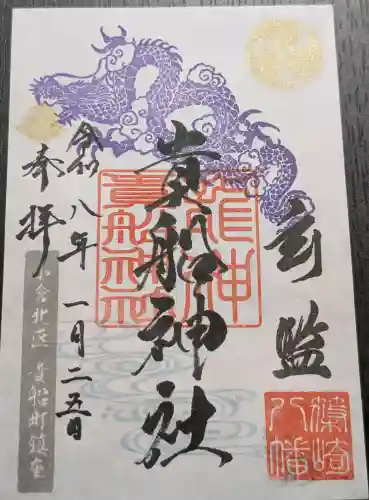 篠崎八幡
貴船神社
龍神
貴船神社
令和八年一月二五日
奉拝
小倉北区 貴船町鎮座